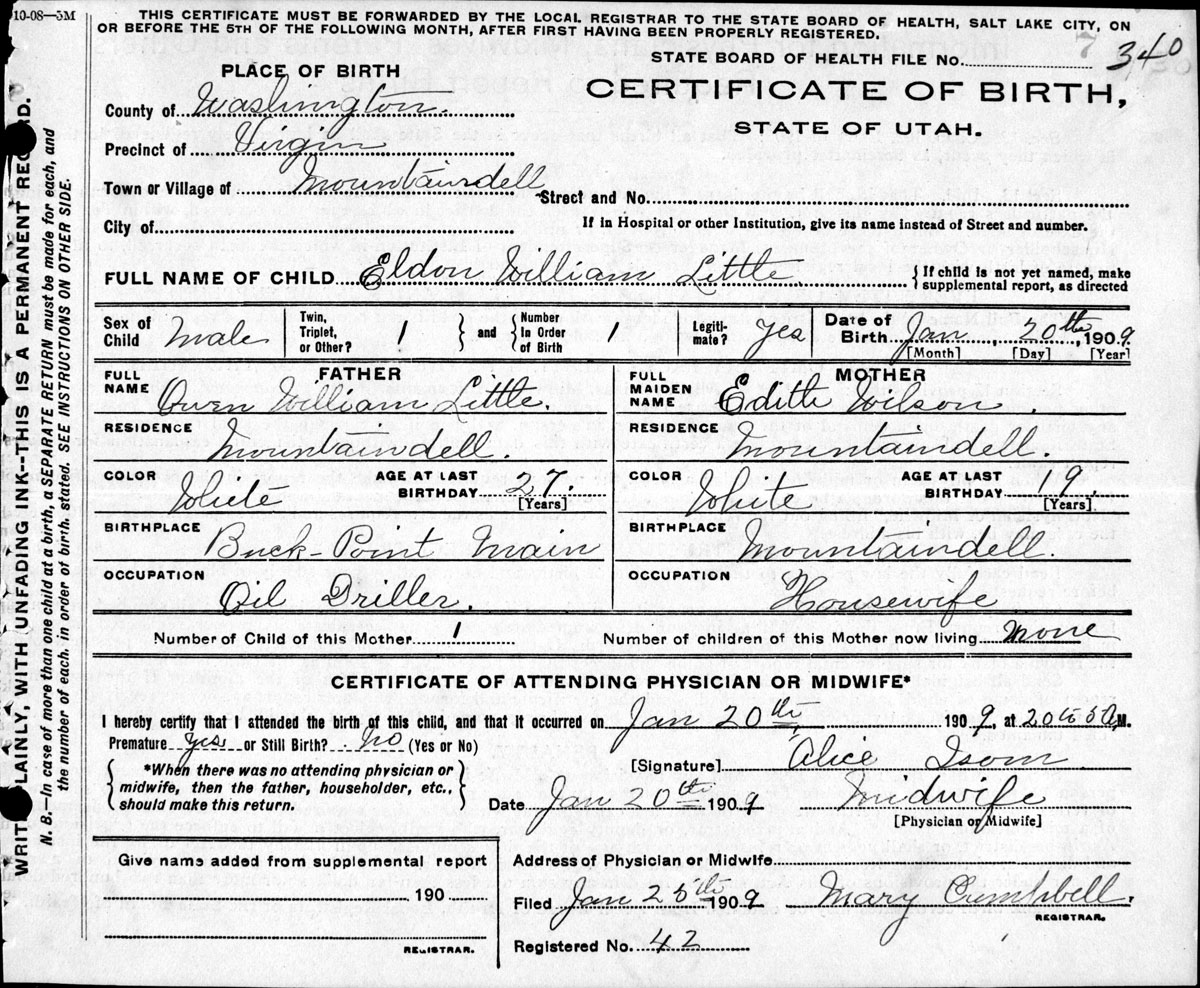 10-08—5M
THIS CERTIFICATE MUST BE FORWARDED BY THE LOCAL REGISTRAR TO THE STATE BOARD OF HEALTH, SALT LAKE CITY, ON
OR BEFORE THE 5TH OF THE FOLLOWING MONTH, AFTER FIRST HAVING BEEN PROPERLY REGISTERED.
STATE BOARD OF HEALTH FILE No. 340
PLACE OF BIRTH
CERTIFICATE OF BIRTH,
STATE OF UTAH.
County of Washington.
Precinct of Virgin
Town or Village of Mountaindell Street and No.
City of
If in Hospital or other Institution, give its name instead of Street and number.
FULL NAME OF CHILD Eldon William Little {If child is not yet named, make
supplemental report, as directed
Sex of Child Male Twin, Triplet, or Other? 1 } and { Number In Order of Birth 1 Legiti-mate? Yes Date of Birth Jan, 20th, 1909
[Month] [Day] [Year]
FATHER
FULL NAME Owen William Little.
RESIDENCE Mountaindell.
COLOR White AGE AT LAST BIRTHDAY 27
[Years]
BIRTHPLACE Buck-Point Main
OCCUPATION Oil Driller.
MOTHER
FULL MAIDEN NAME Edith Wilson.
RESIDENCE Mountaindell.
COLOR White AGE AT LAST BIRTHDAY 19.
[Years]
BIRTHPLACE Mountaindell.
OCCUPATION Housewife
Number of Child of this Mother 1 Number of children of this Mother now living None
CERTIFICATE OF ATTENDING PHYSICIAN OR MIDWIFE*
I hereby certify that I attended the birth of this child, and that it occurred on Jan 20th, 1909, at 20 to 5 M.
Premature Yes or Still Birth? No (Yes or No)
{ *When there was no attending physician or
midwife, then the father, householder, etc.,
should make this return. }
[Signature] Alice Isom
Date Jan 20th 1909 Midwife
[Physician or Midwife]
Give name added from supplemental report
190
REGISTRAR.
Address of Physician or Midwife
Filed Jan 25th 1909 Mary Campbell.
REGISTRAR.
Registered No. 42
WRITE PLAINLY, WITH UNFADING INK--THIS IS A PERMANENT RECORD.
N. B.—In case of more than one child at a birth, a SEPARATE RETURN must be made for each, and
the number of each, in order of birth, stated. SEE INSTRUCTIONS ON OTHER SIDE.